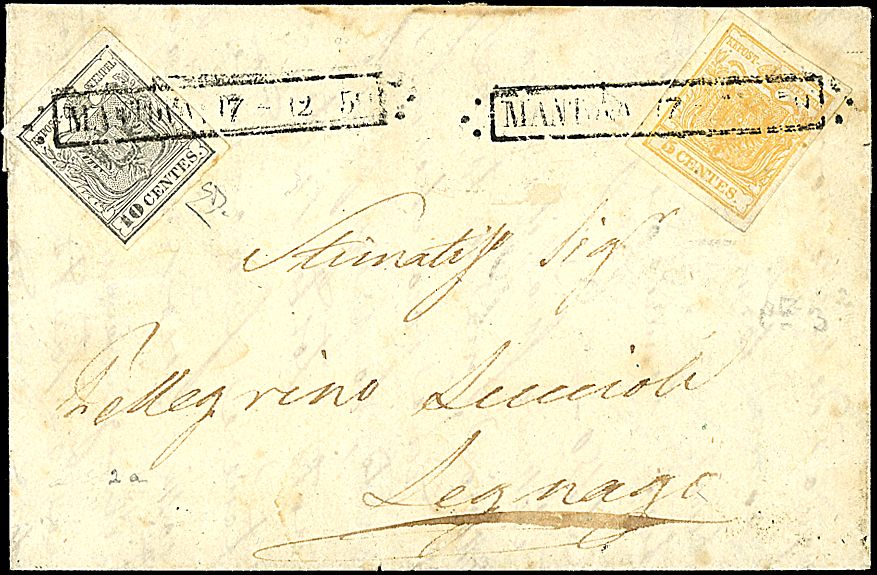 KKPOST STEMPEL
10 CENTES.
MANTOVA 17 - 12 50
MANTOVA 17
KKPOST
5 CENTES.
SD.
Stimatiss Sigr
Pellegrino Luccioli
Legnago
2a
3